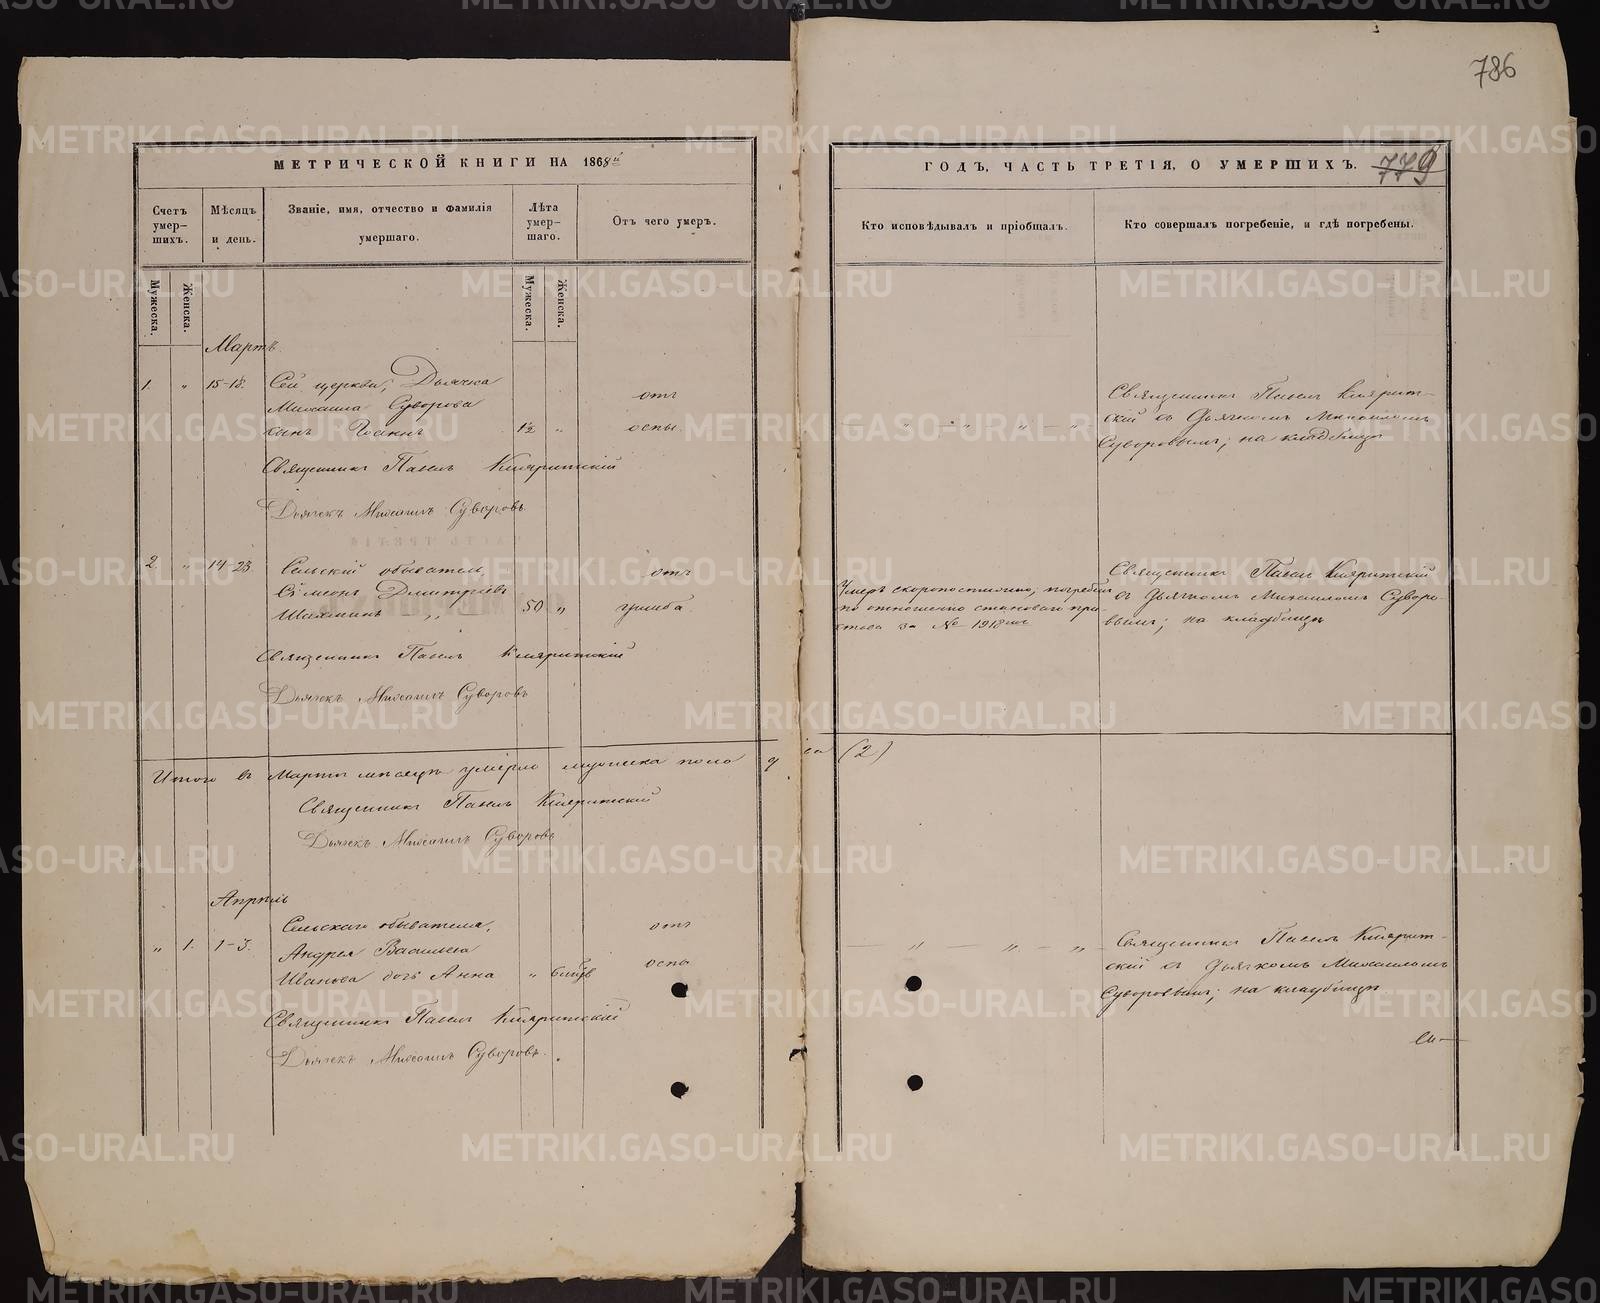 786
МЕТРИЧЕСКОЙ КНИГИ НА 1868й
ГОДЪ, ЧАСТЬ ТРЕТІЯ, О УМЕРШИХЪ.
779
Счетъ умер-шихъ.
Мѣсяцъ и день.
Званіе, имя, отчество и фамилія умершаго.
Лѣта умер-шаго.
Отъ чего умеръ.
Кто исповѣдывалъ и пріобщалъ.
Кто совершалъ погребеніе, и гдѣ погребены.
Мужеска.
Женска.
Мужеска.
Женска.
Мартъ.
1. " 15-18. Сей церкви, Дьячка
Михаила Суворова
сынъ Іоаннъ
"
отъ
оспы.
" " " "
Священникъ Павелъ
съ Дьячкомъ Михаиломъ
Суворовымъ; на кладбищѣ
Священникъ Павелъ
Дьячекъ Михаилъ Суворовъ
2. " 14-23. Сельскій обыватель,
Сімеонъ Димитріевъ
50 "
отъ
Умеръ скоропостижно, погребенъ
по отношенію становаго при-
става за № 1918мъ
Священникъ Павелъ
съ Дьячкомъ Михаиломъ Суворо-
вымъ; на кладбищѣ
Священникъ Павелъ
Дьячекъ Михаилъ Суворовъ
Итого въ Мартѣ мѣсяцѣ умерло мужеска пола два (2)
Священникъ Павелъ
Дьячекъ Михаилъ Суворовъ
Апрѣль
" 1. 1-3. Сельскаго обывателя,
Андрея Васильева
Иванова дочь Анна
"
отъ
оспы
" " "
Священникъ Павелъ
съ Дьячкомъ Михаиломъ
Суворовымъ; на кладбищѣ.
Священникъ Павелъ
Дьячекъ Михаилъ Суворовъ.
METRIKI.GASO-URAL.RU